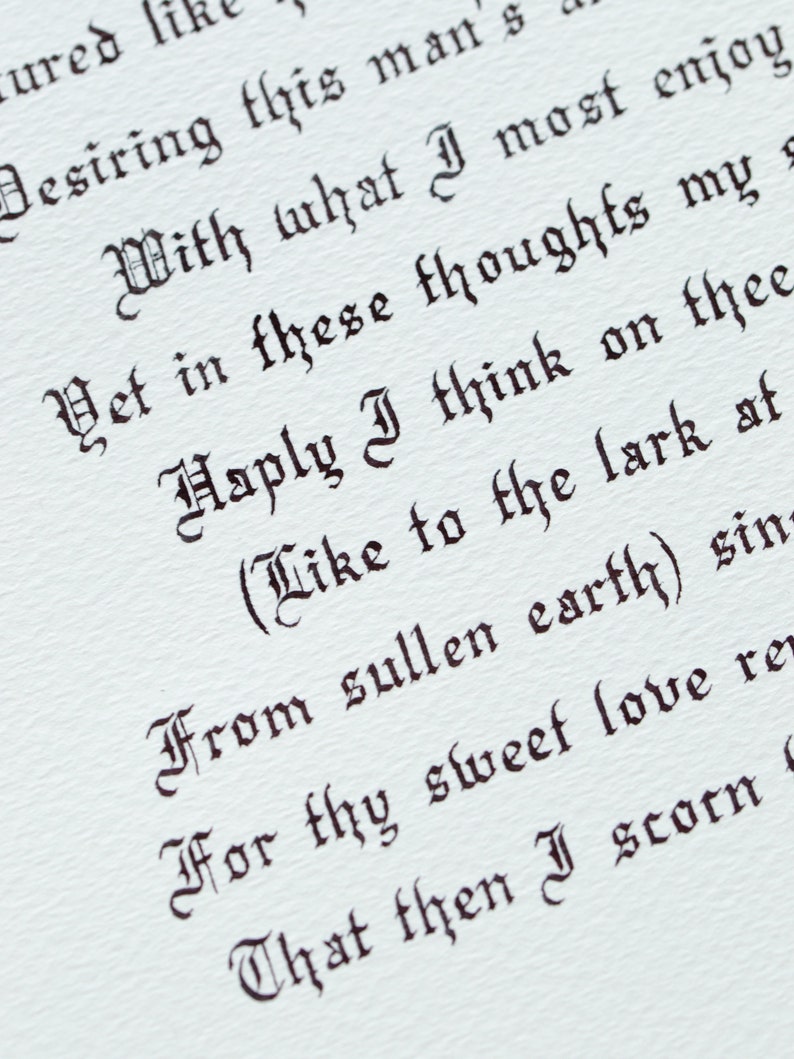 tured like
Desiring this man's
With what I most enjoy
Yet in these thoughts my s
Haply I think on thee
(Like to the lark at
From sullen earth) sin
For thy sweet love re
That then I scorn